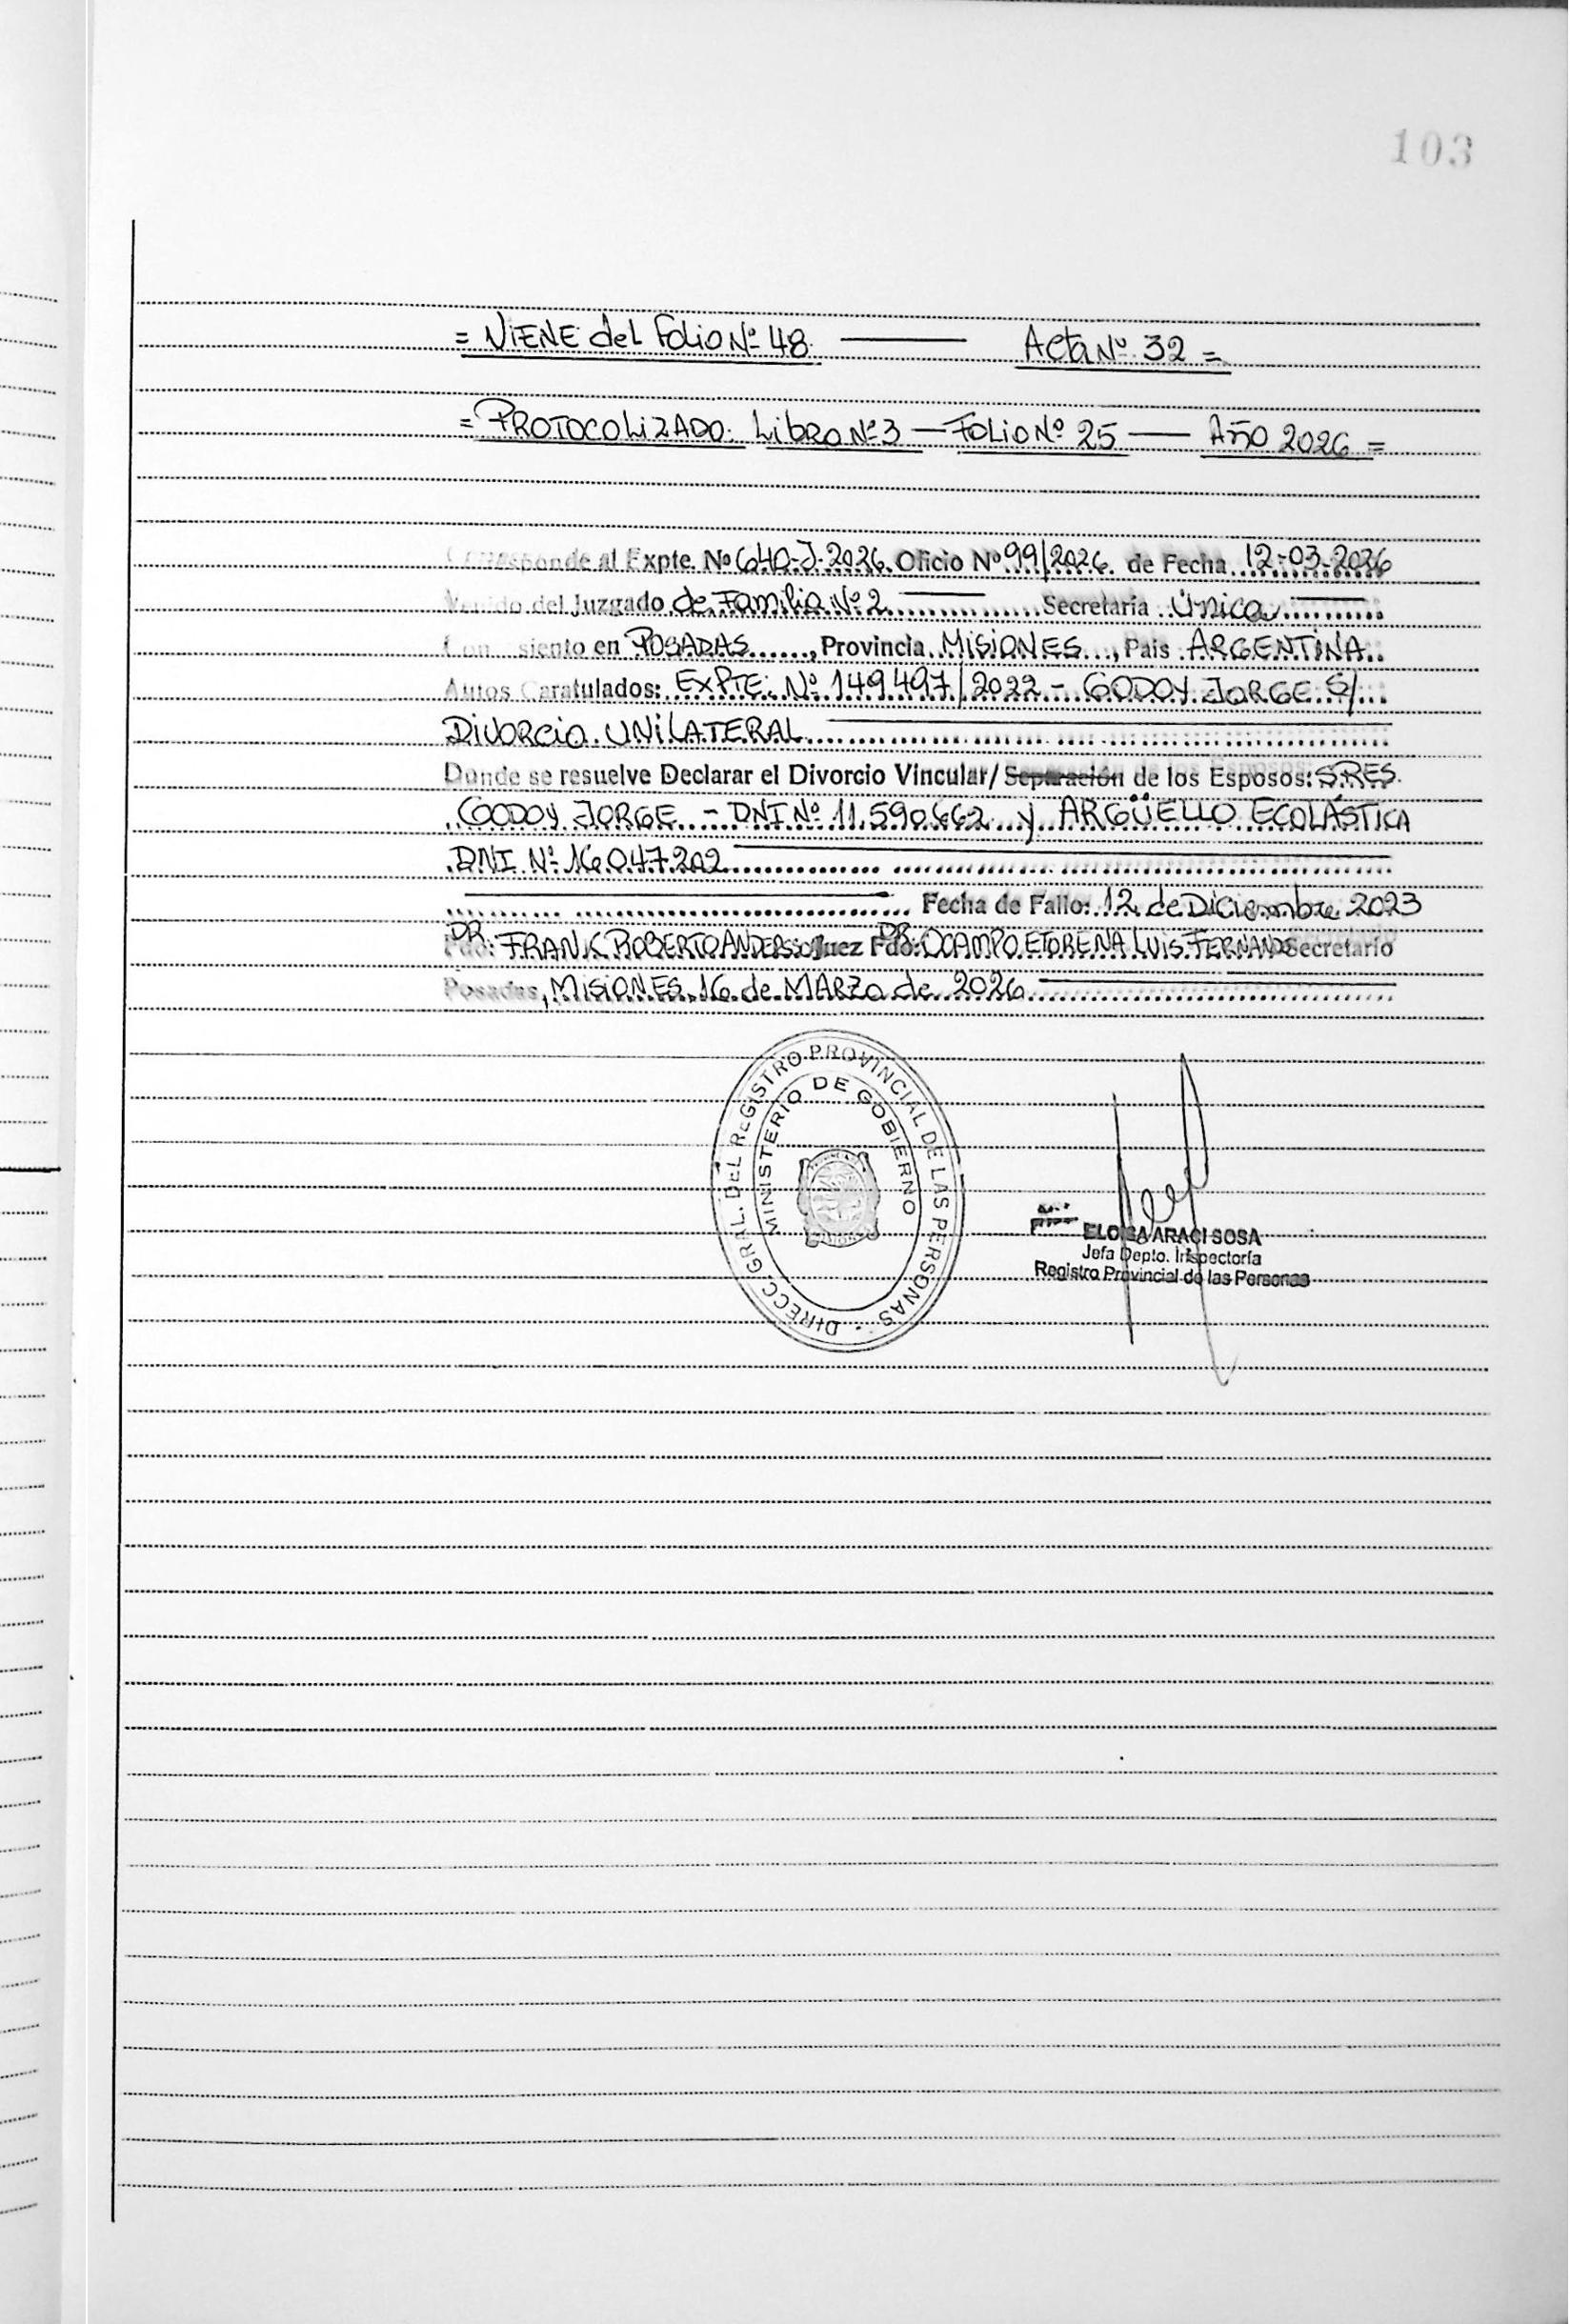 103
= ViENE del Folio Nº 48 —— Acta Nº 32 =
= PROTOCOLIZADO: Libro Nº 3 — Folio Nº 25 — Año 2026 =
Corresponde al Expte. Nº 640-J-2026. Oficio Nº 99/2026. de Fecha 12-03-2026
Venido del Juzgado de Familia Nº 2 Secretaría Única
Con siento en POSADAS, Provincia MISIONES, Pais ARGENTINA.
Autos Caratulados: EXPTE. Nº 149497/2022 - GODOY JORGE S/
DIVORCIO UNILATERAL
Donde se resuelve Declarar el Divorcio Vincular/Separación de los Esposos: SRES.
GODOY JORGE - DNI Nº 11.590.662 y ARGÜELLO ECOLÁSTICA
DNI Nº 16.047.202
Fecha de Fallo: 12 de Diciembre 2023
Fdo: DR. FRANK ROBERTO ANDERSSO Juez Fdo: DR. OCAMPO ETORENA LUIS FERNANDO Secretario
Posadas, MISIONES, 16 de MARZO de 2026
DIRECC. GRAL. DEL REGISTRO PROVINCIAL DE LAS PERSONAS
MINISTERIO DE GOBIERNO
ELOISA ARACI SOSA
Jefa Depto. Inspectoría
Registro Provincial de las Personas